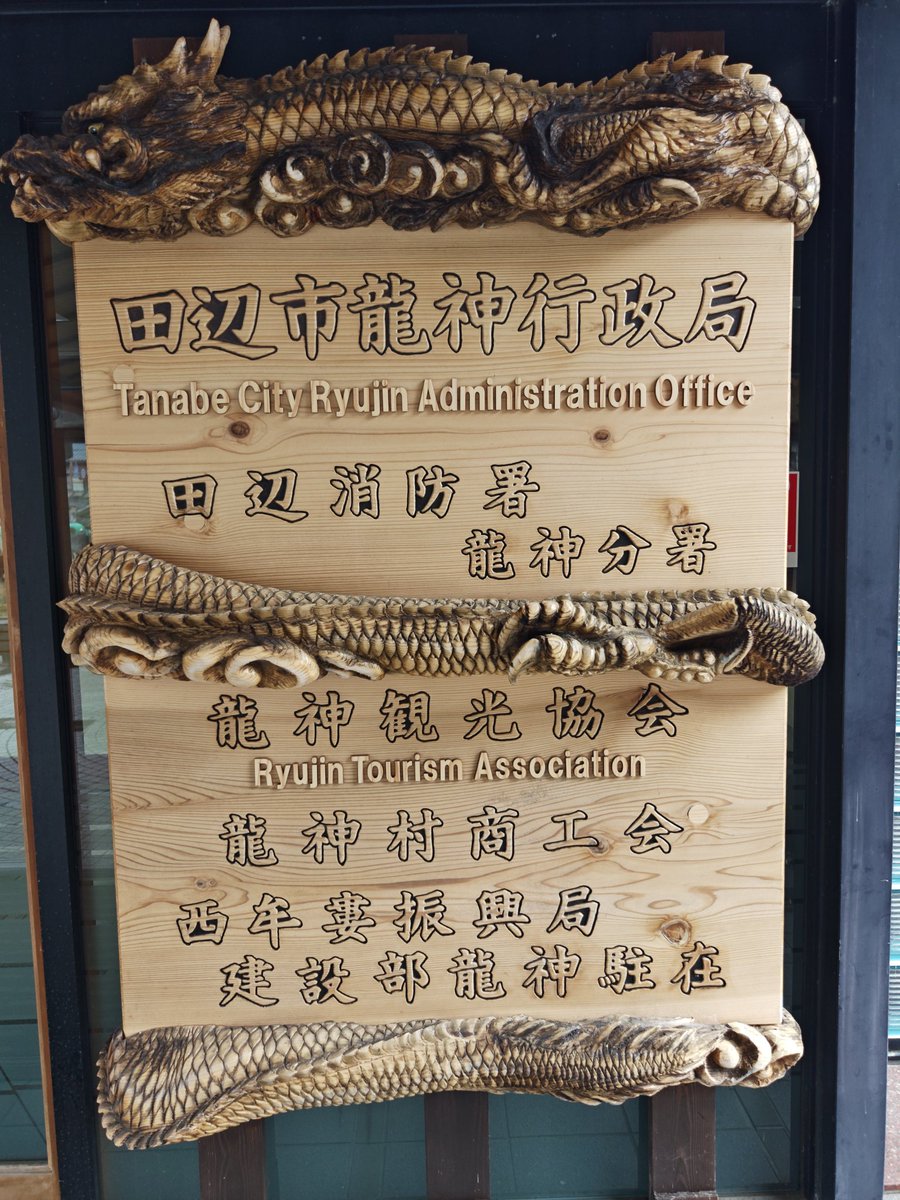 田辺市龍神行政局
Tanabe City Ryujin Administration Office
田辺消防署
龍神分署
龍神観光協会
Ryujin Tourism Association
龍神村商工会
西牟婁振興局
建設部龍神駐在